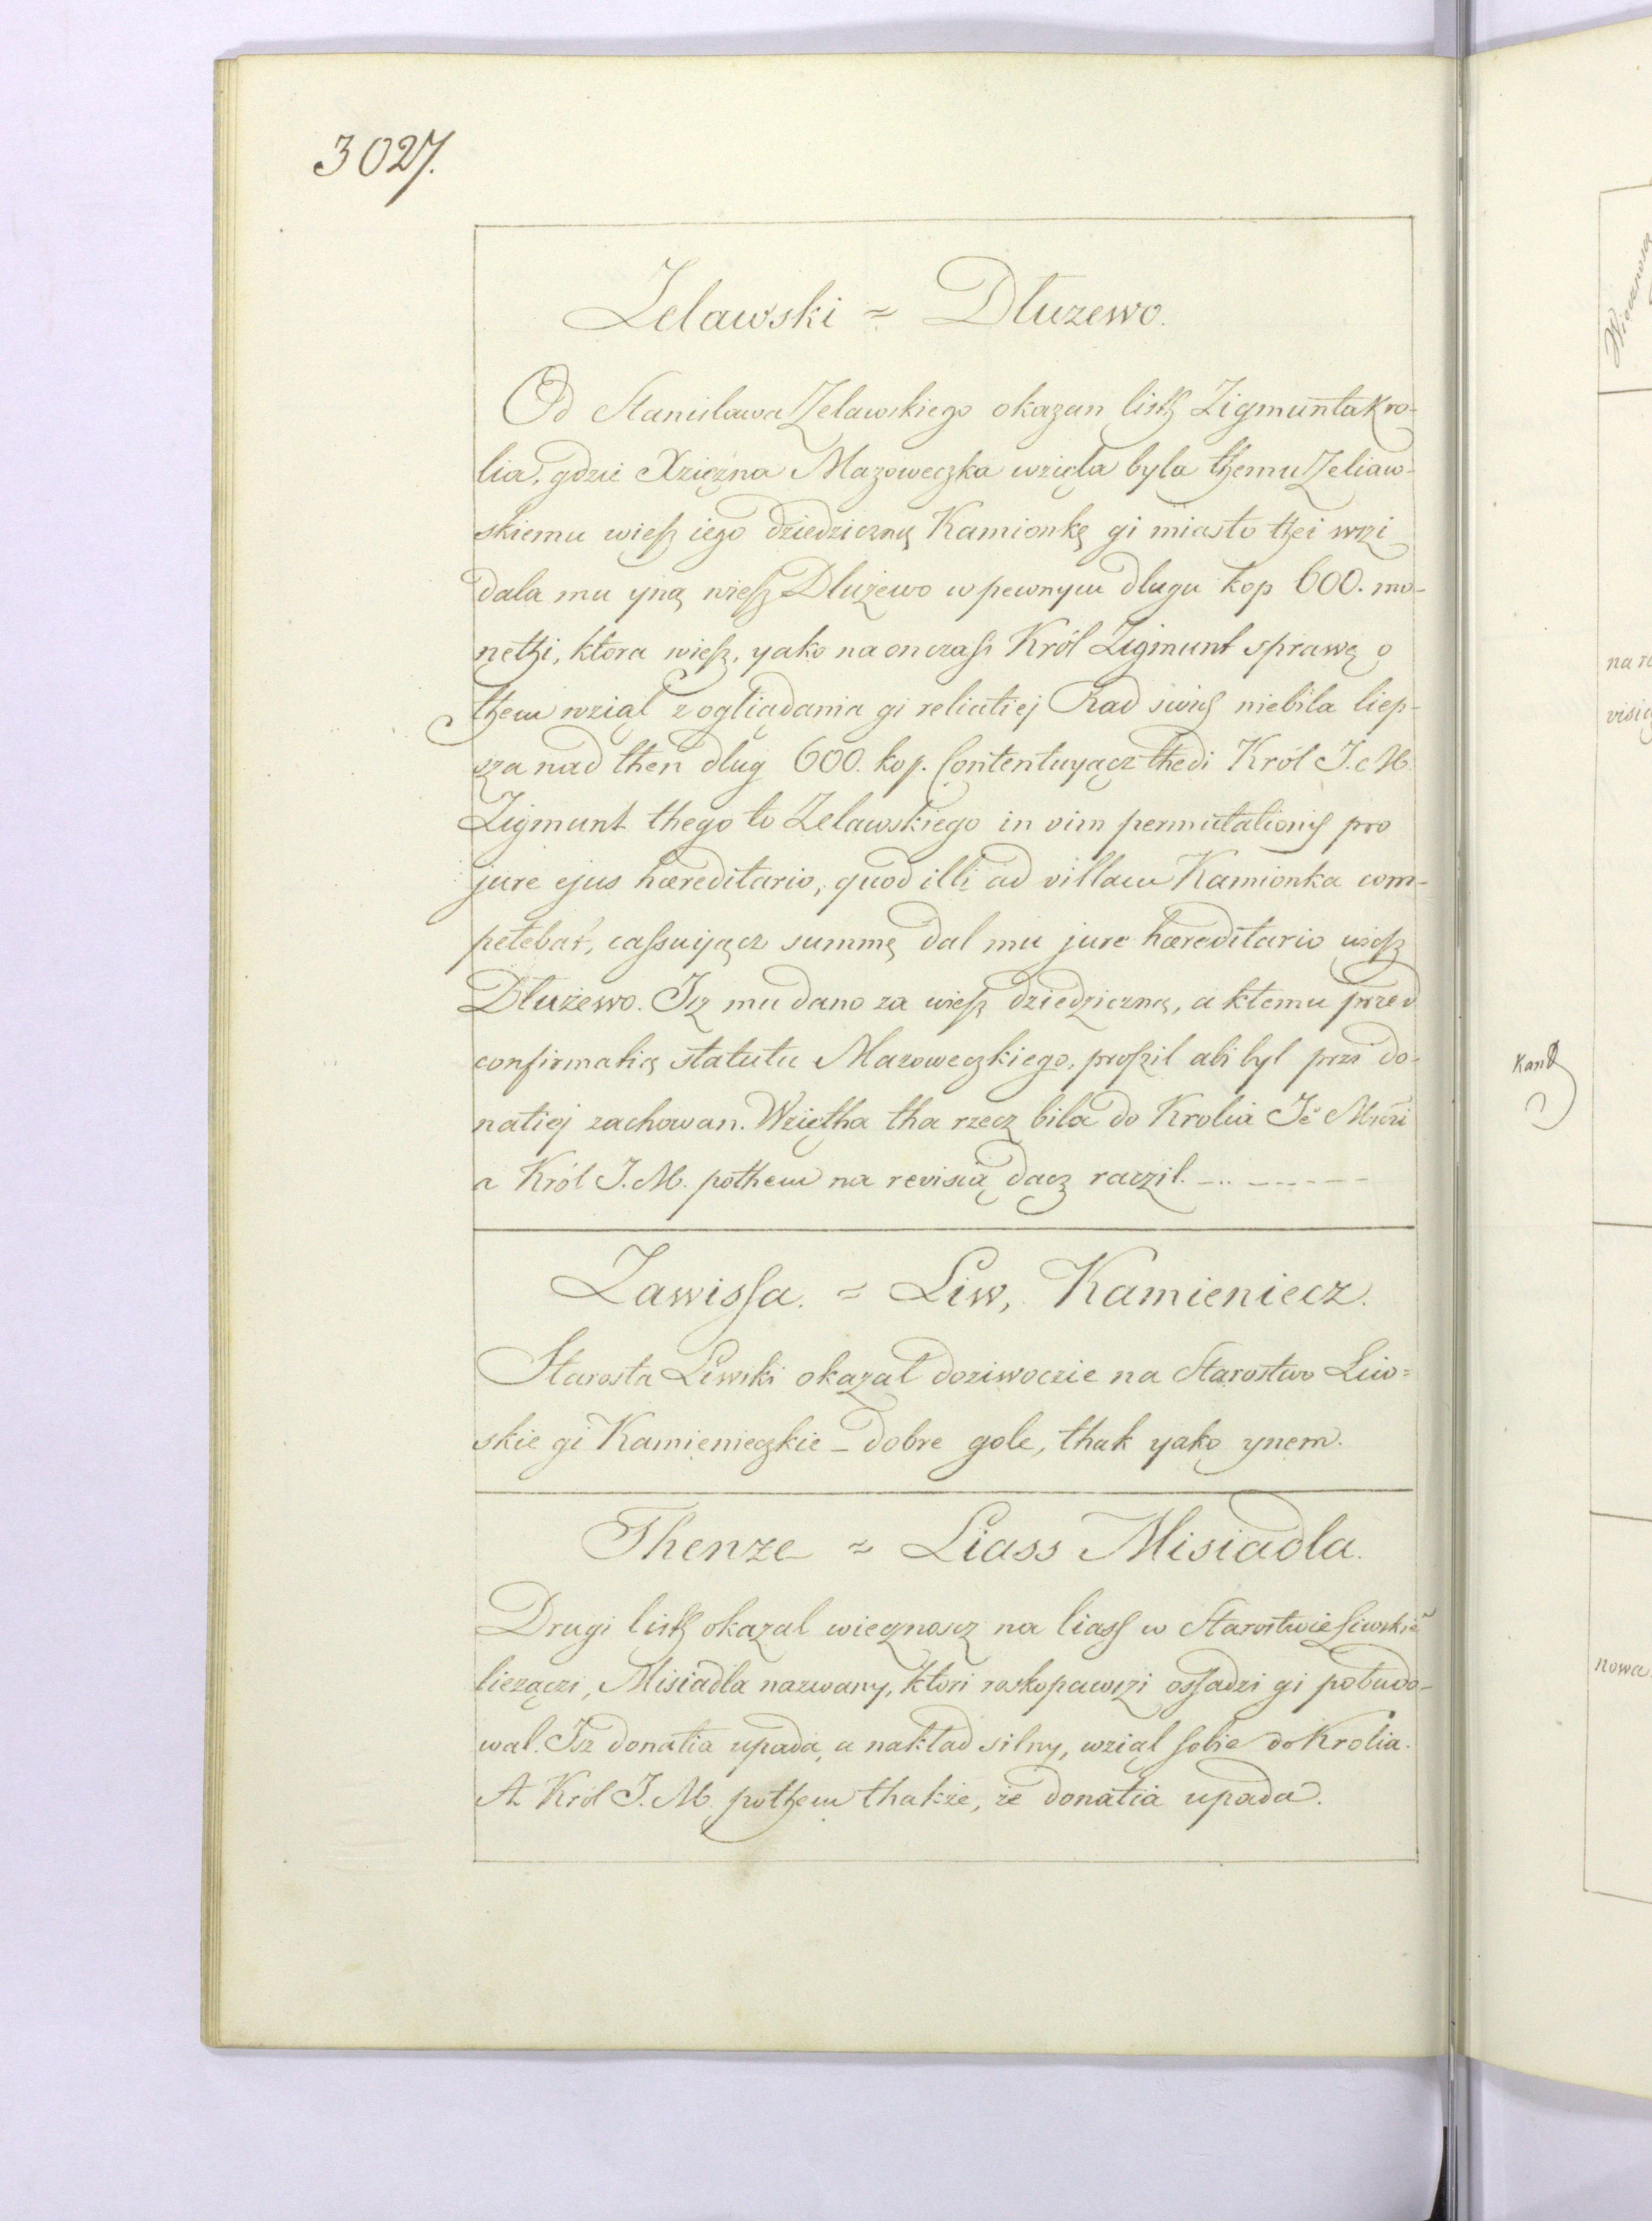 3027.
Zelawski = Dłuzewo.
Od Stanisława Zelawskiego okazan listh Zigmunta Kro-
lia, gdzie Xziężna Mazoweczka wzięła była themu Zeliaw-
skiemu wiesz iego dziedziczną Kamionkę gi miasto thei wszi
dala mu yną wiesz Dlużewo w pewnym dlugu kop 600. mo-
nethi, ktora wiesz, yako na on czass Król Zigmunt sprawę o
them wziąl z ogliądania gi reliatiej Rad swich niebila liep-
sza nad then dlug 600. kop. Contentuyącz thedi Król J. M.
Zigmunt thego to Zelawskiego in vim permutationis pro
jure ejus hæreditario, quod illi ad villam Kamionka com-
petebat, cassuyącz summę dal mu jure hæreditario wiesz
Dłużewo. Isz mu dano za wiesz dziedziczną, a ktemu przed
confirmatią statutu Mazoweczkiego, prosził abi byl przi do-
natiej zachowan. Wziętha tha rzecz bila do Krolia Je Mczi
a Król J. M. pothem na revisią dacz raczil.
Zawissa. = Liw, Kamieniecz.
Starosta Liwski okazał doziwoczie na Starostwo Liw=
skie gi Kamienieczkie – dobre gole, thak yako ynem.
Thenze = Liass Misiadla.
Drugi listh okazal wiecznoscz na liass w Starostwie Liwskie
liezączi, Misiadla nazwany, ktori roskopawszi ossadzi gi pobudo-
wal. Isz donatia upada, a nakład silny, wziąl sobie do Krolia.
A Król J. M. pothem thakże, że donatia upada.
na r
visią
Kan
nowa